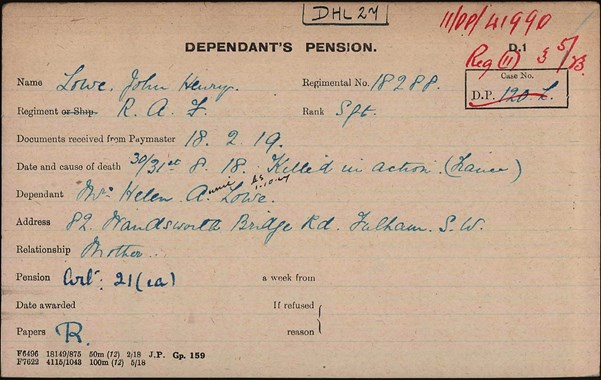 DHL 27
11/DP/41990
DEPENDANT'S PENSION.
D.1
Reg (11) 3 5/23.
Name Lowe. John Henry.
Regimental No. 18288.
Case No.
D.P. 120. L.
Regiment or Ship. R. A. F.
Rank Sgt.
Documents received from Paymaster 18. 2. 19.
Date and cause of death 30/31st 8. 18. Killed in action. (France)
Dependant Mrs Helen Annie Lowe.
Address 82. Wandsworth Bridge Rd. Fulham. S.W.
Relationship Mother.
Pension 21(1a) a week from
Date awarded
If refused
Papers R.
reason
F6496 18149/875 50m (12) 2/18 J.P. Gp. 159
F7622 4115/1043 100m (12) 5/18